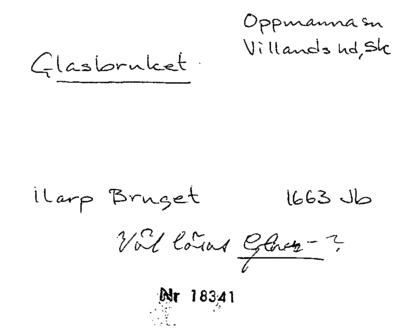 Oppmanna sn
Villands hd, Sk
Glasbruket
ilarp Bruget 1663 Jb
Väl läsas Glas-?
Nr 18341